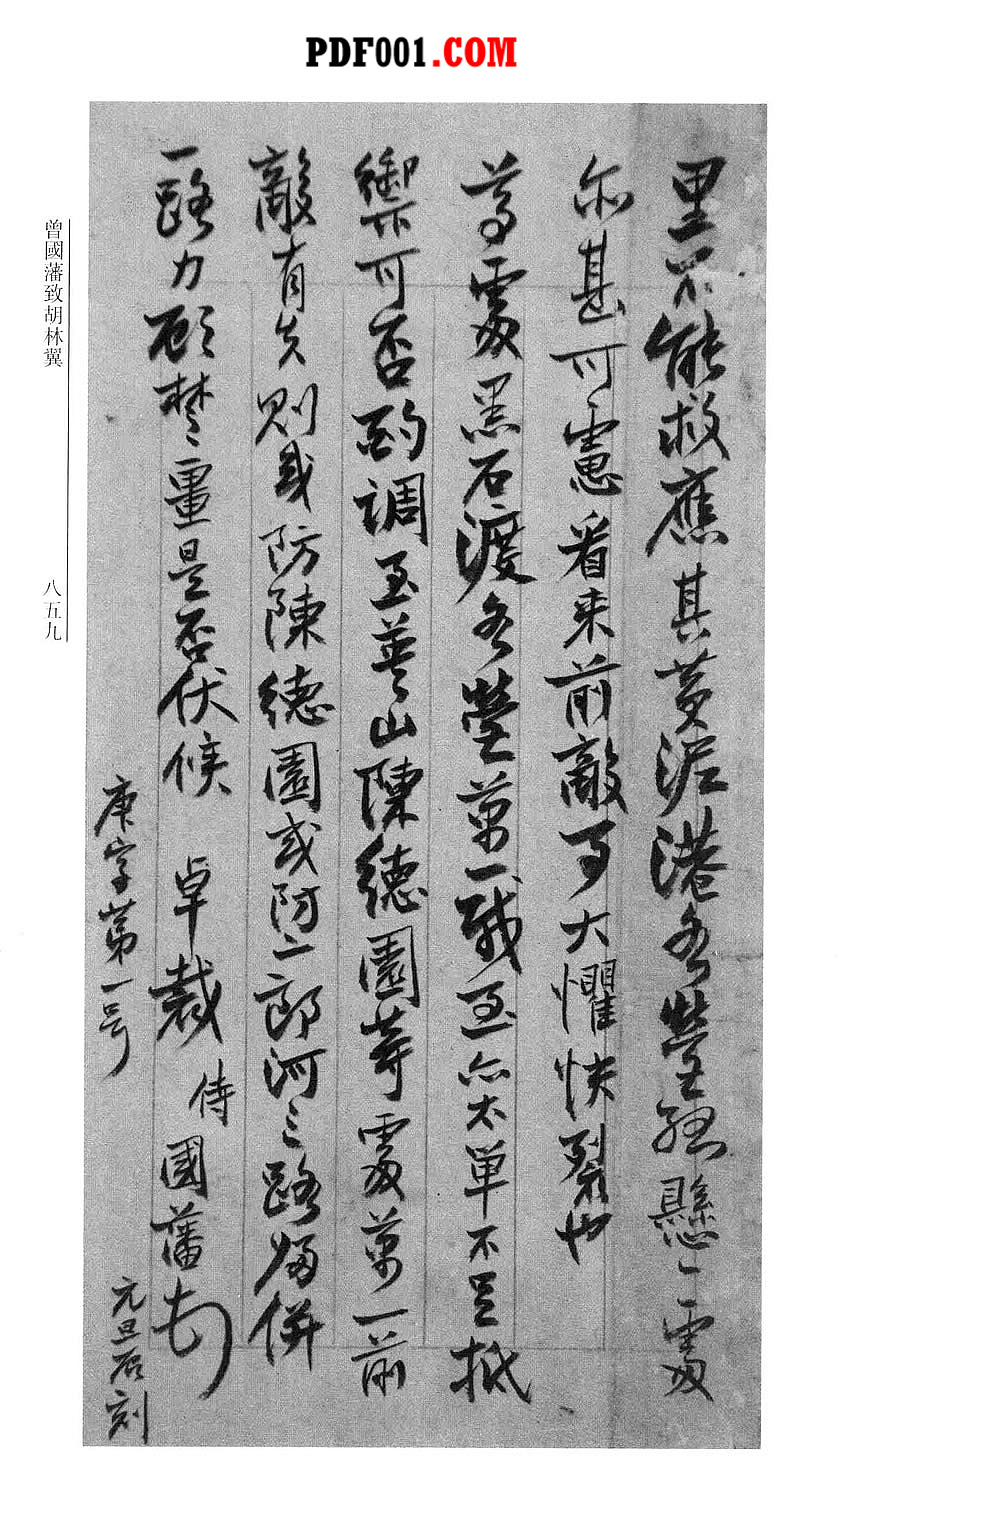 PDF001.COM
里不能救應其黃泥港各營孤懸一處
亦甚可慮看來前敵事大懼快裂也
尊處黑石渡各營萬一戰亦太單不足抵
禦可否酌調至英山陳德園等處萬一前
敵有失則或防陳德園或防二郎河三路歸併
一路力顧楚疆是否伏候 卓裁 侍國藩頓
庚字第一号
元旦石刻
曾國藩致胡林翼
八五九